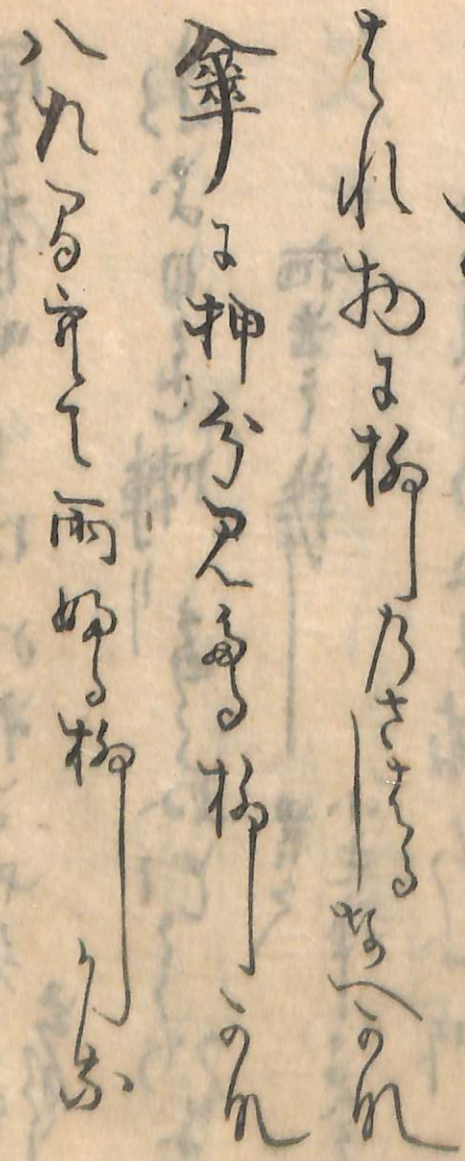 はれ物に柳のさはるしなへかな
傘に押分見たる柳かな
八九間空て雨ふる柳かな